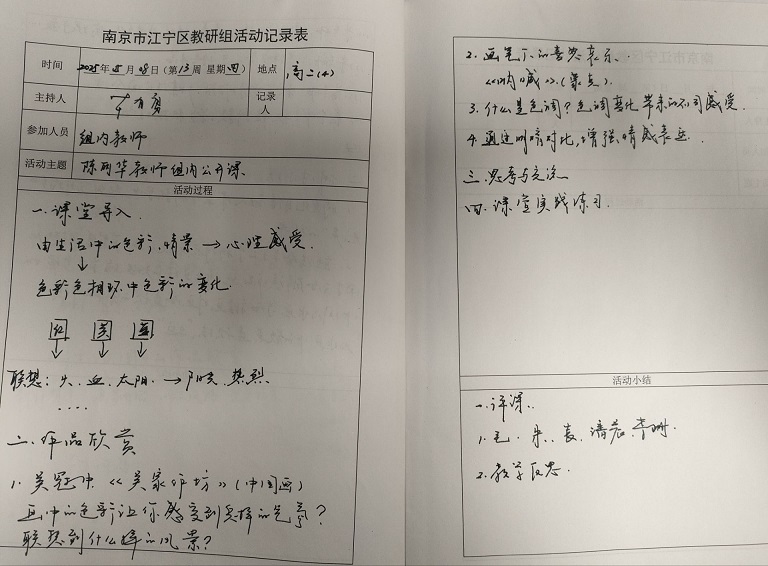 南京市江宁区教研组活动记录表
时间 2025年5月08日(第13周 星期四) 地点 高二(4)
主持人 记录人
参加人员 组内教师
活动主题 陈丽华教师组内公开课
活动过程
一.课堂导入.
由生活中的色彩.情景→心理感受.
↓
色彩色相环中色彩的变化.
红 黄 蓝
↓ ↓ ↓
联想: 火、血、太阳.→阳光.热烈.
....
二.作品欣赏
1. 吴冠中《吴家作坊》(中国画)
画中的色彩让你感受到怎样的气氛?
联想到什么样的风景?
2. 画笔下的喜怒哀乐.
《呐喊》.(蒙克).
3. 什么是色调?色调变化带来的不同感受.
4. 通过明暗对比,增强情感表达.
三.思考与交流
四.课堂实践练习.
活动小结
一.评课.
1. 毛.朱.袁.
2. 教学反思.